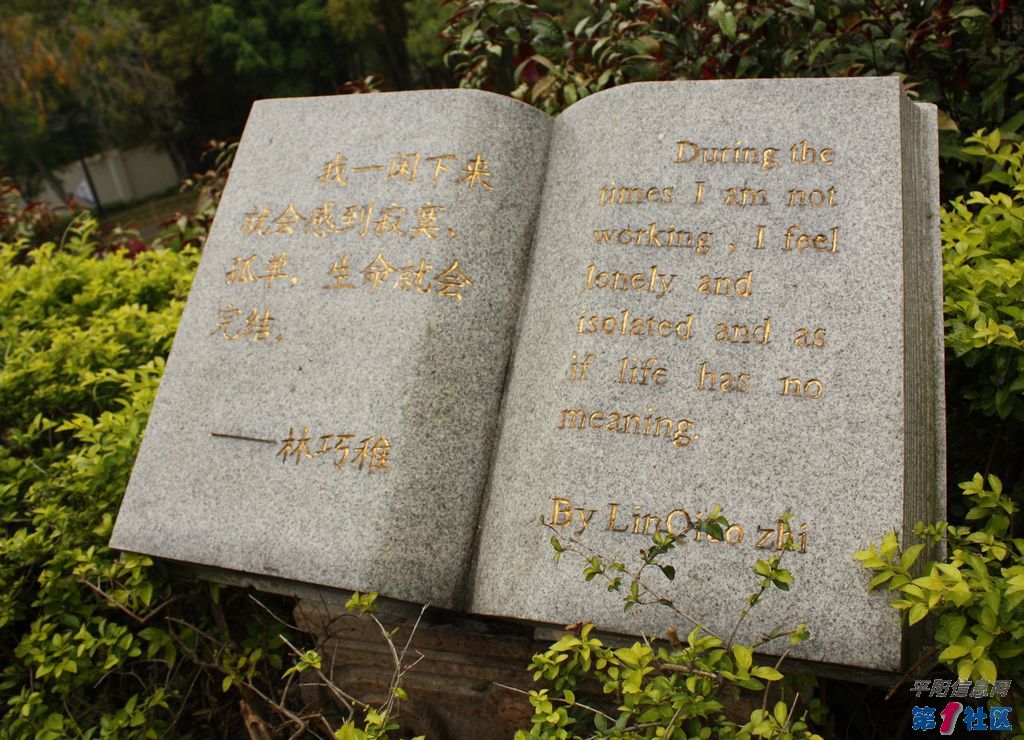 我一闲下来
就会感到寂寞、
孤单，生命就会
完结。
——林巧稚
During the
times I am not
working , I feel
lonely and
isolated and as
if life has no
meaning.
By LinQiao zhi
平阳信息网
第1社区